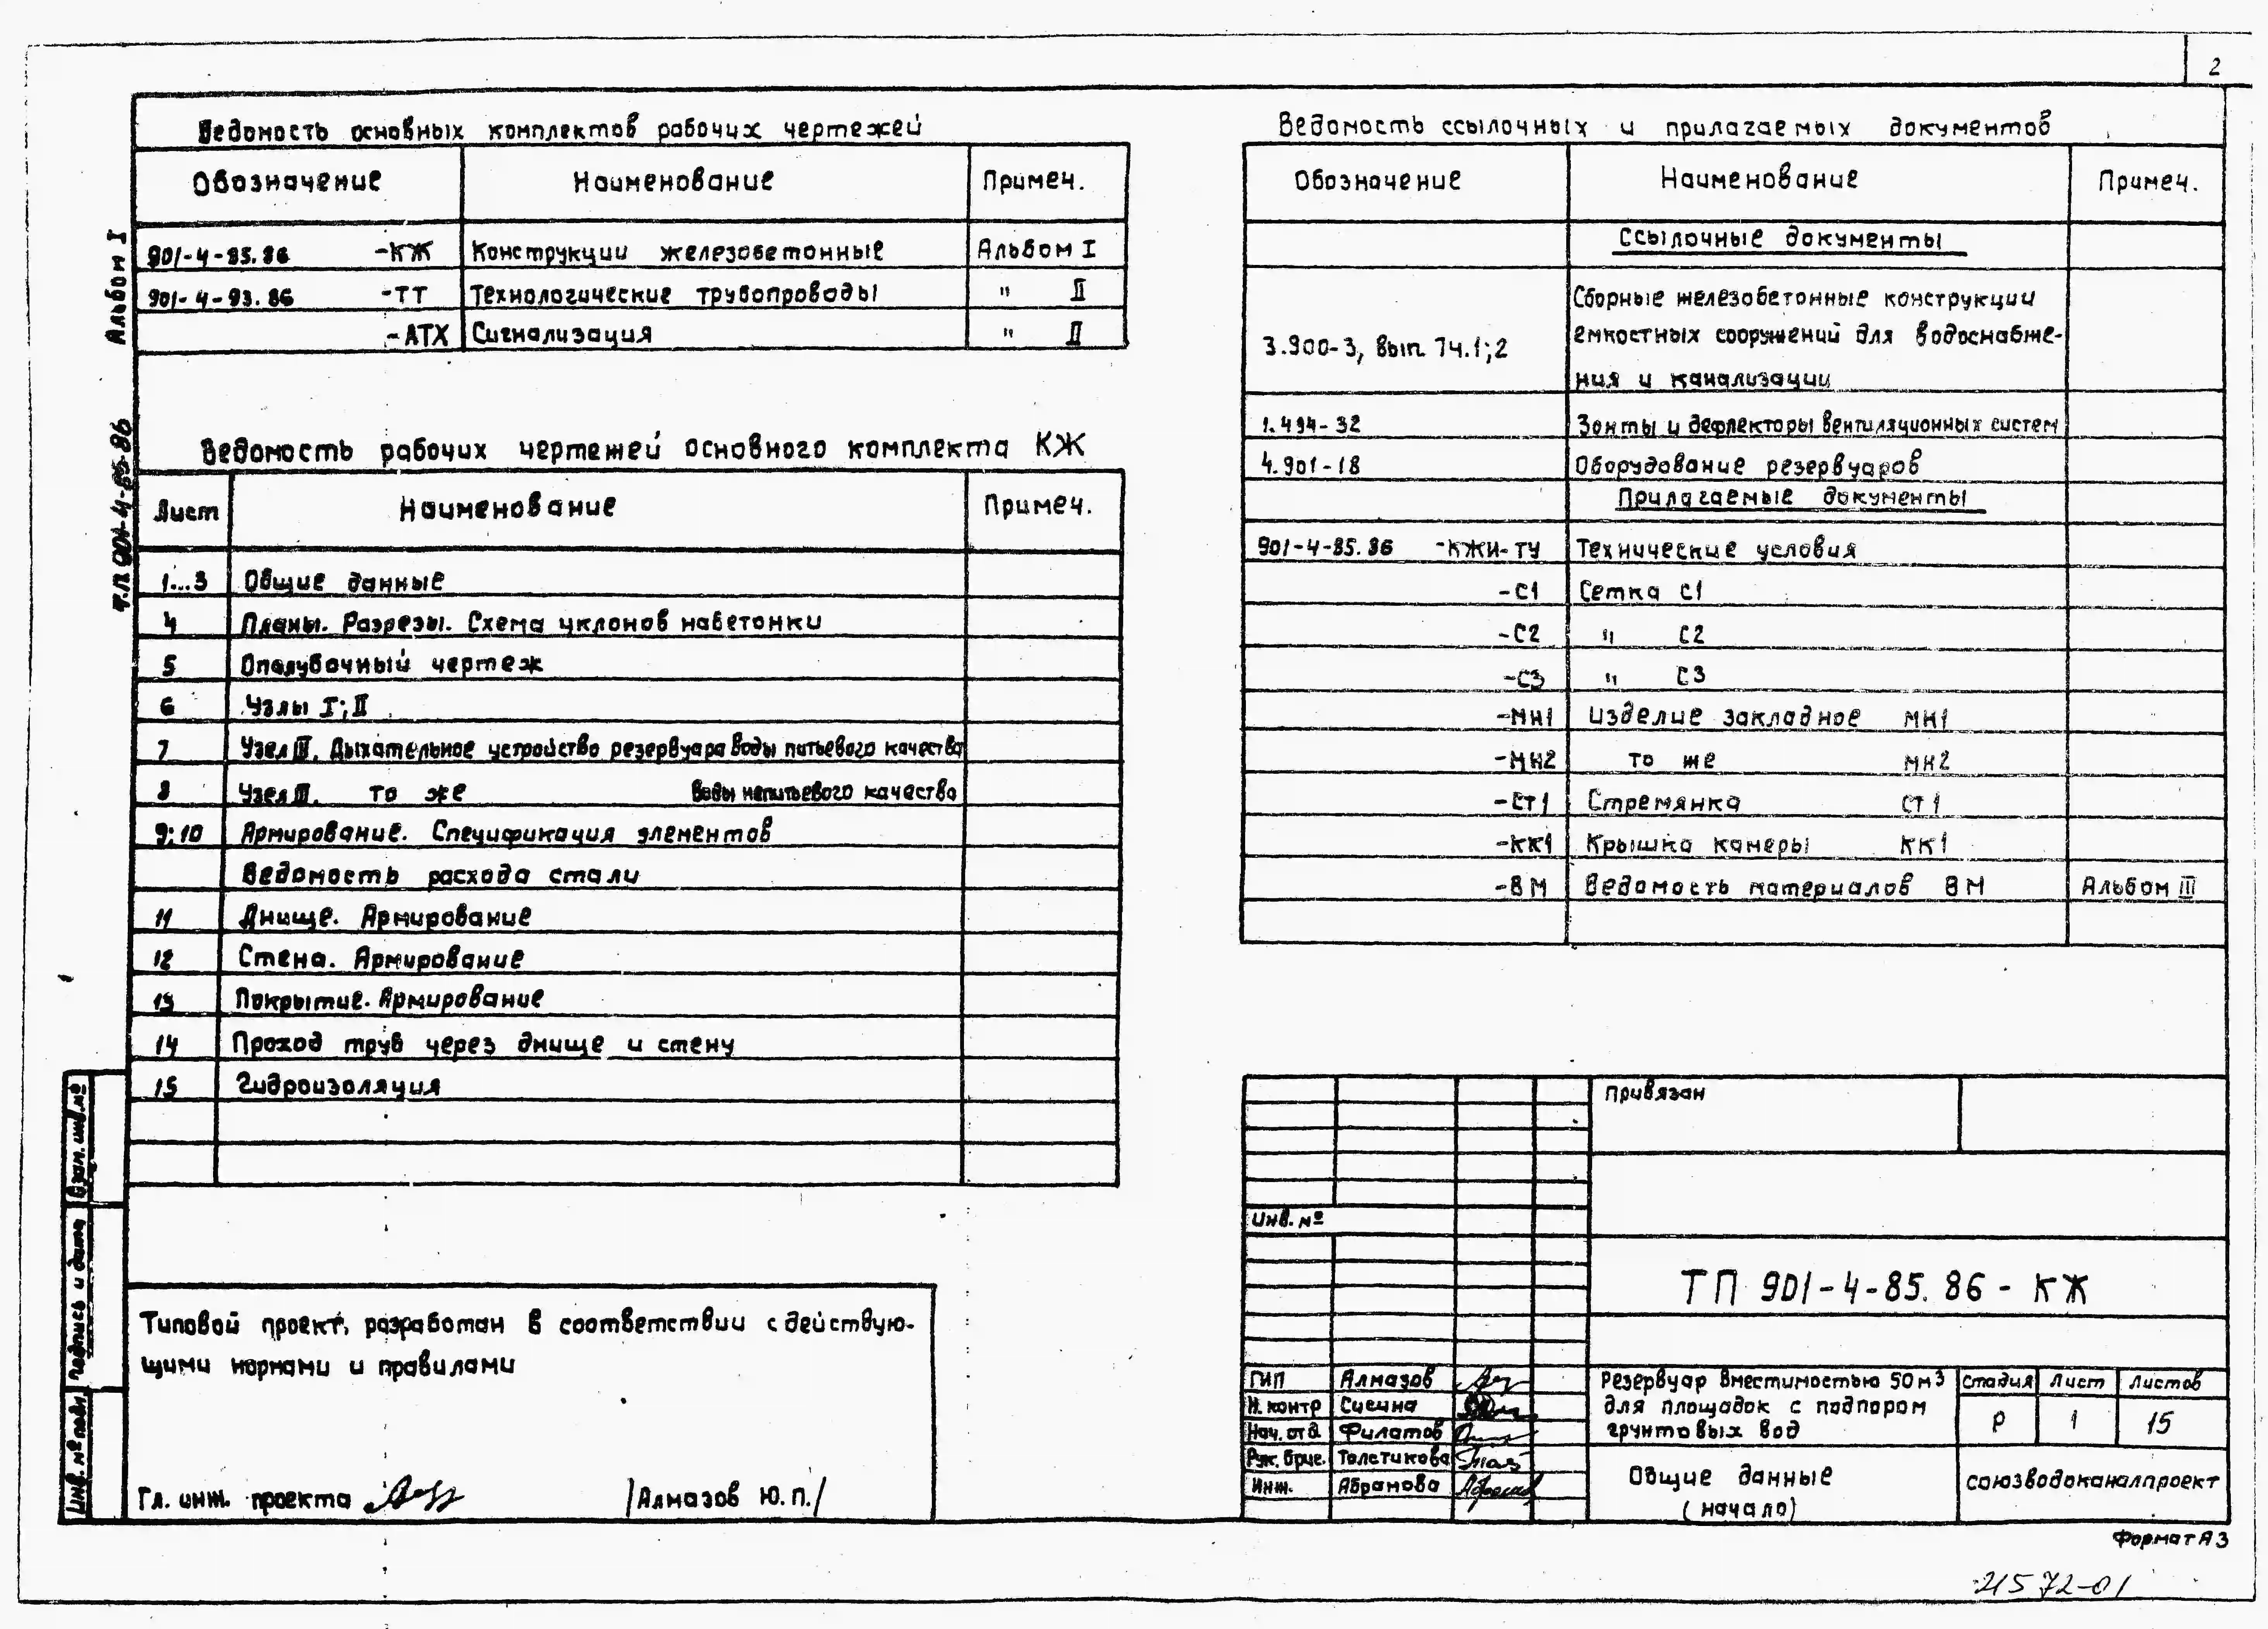 2
Ведомость основных комплектов рабочих чертежей
Обозначение Наименование Примеч.
901-4-85.86 -КЖ Конструкции железобетонные Альбом I
901-4-93.86 -ТТ Технологические трубопроводы " II
-АТХ Сигнализация " II
Ведомость рабочих чертежей основного комплекта КЖ
Лист Наименование Примеч.
1...3 Общие данные
4 Планы. Разрезы. Схема уклонов набетонки
5 Опалубочный чертеж
6 Узлы I; II
7 Узел III. Дыхательное устройство резервуара воды питьевого качества
8 Узел III. то же воды непитьевого качества
9; 10 Армирование. Спецификация элементов
Ведомость расхода стали
11 Днище. Армирование
12 Стена. Армирование
13 Покрытие. Армирование
14 Проход труб через днище и стену
15 Гидроизоляция
Типовой проект разработан в соответствии с действую-
щими нормами и правилами
Гл. инж. проекта /Алмазов Ю.П./
Ведомость ссылочных и прилагаемых документов
Обозначение Наименование Примеч.
Ссылочные документы
3.900-3, вып. 7ч.1;2 Сборные железобетонные конструкции
емкостных сооружений для водоснабже-
ния и канализации
1.494-32 Зонты и дефлекторы вентиляционных систем
4.901-18 Оборудование резервуаров
Прилагаемые документы
901-4-85.86 -КЖИ-ТУ Технические условия
-С1 Сетка С1
-С2 " С2
-С3 " С3
-МН1 Изделие закладное МН1
-МН2 то же МН2
-СТ1 Стремянка СТ1
-КК1 Крышка камеры КК1
-ВМ Ведомость материалов ВМ Альбом III
Привязан
Инв. №
ТП 901-4-85.86 - КЖ
ГИП Алмазов
Н. контр Сисина
Нач. отд. Филатов
Рук. бриг. Толстикова
Инж. Абрамова
Резервуар вместимостью 50 м3
для площадок с подпором
грунтовых вод
Стадия Лист Листов
Р 1 15
Общие данные
(начало)
союзводоканалпроект
Формат А3
21572-01
Альбом I
т.п. 901-4-85-86
Взам. инв. №
Подпись и дата
Инв. № подл